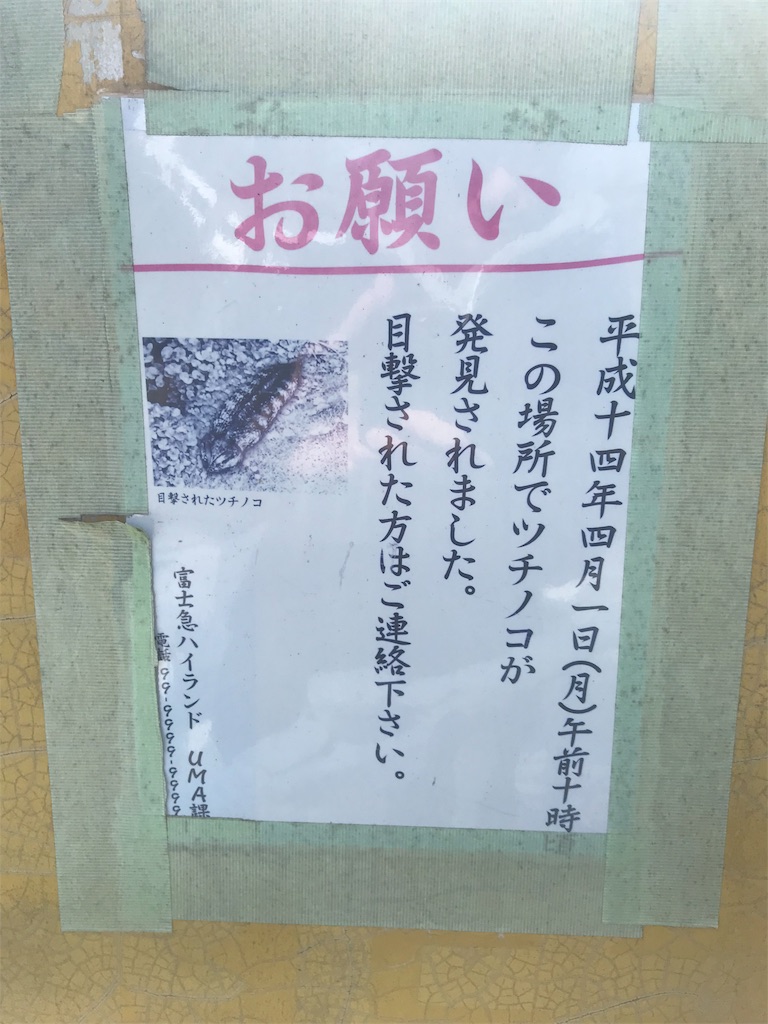 お願い
平成十四年四月一日(月)午前十時頃
この場所でツチノコが
発見されました。
目撃された方はご連絡下さい。
目撃されたツチノコ
富士急ハイランド UMA課
電話 99-9999-9999